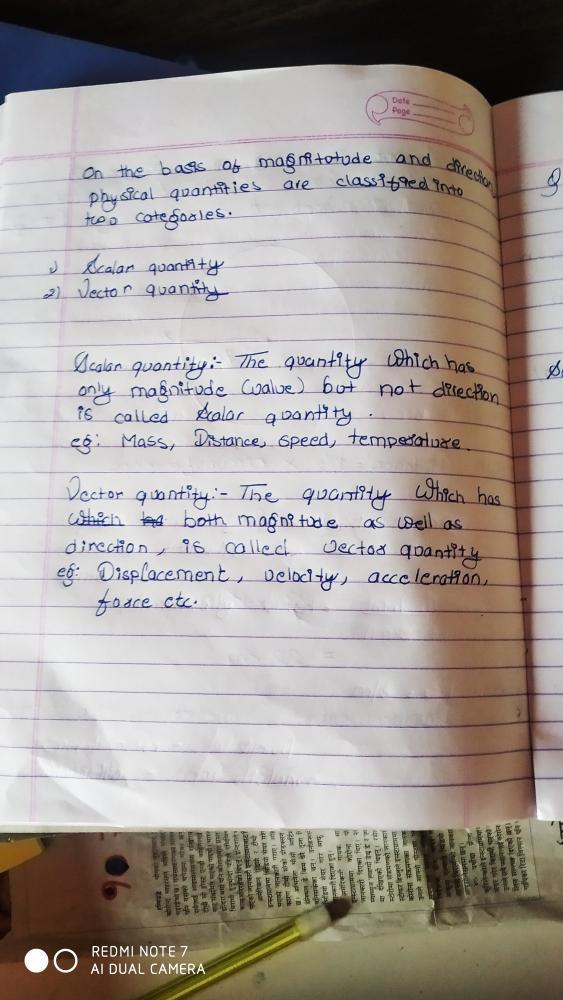 Date
Page
On the basis of magnitotude and direction
physical quantities are classified into
two categories.
1) Scalar quantity
2) Vector quantity
Scalar quantity:- The quantity which has
only magnitude (value) but not direction
is called Scalar quantity.
eg: Mass, Distance, speed, temperature.
Vector quantity:- The quantity which has
which has both magnitude as well as
direction, is called vector quantity
eg: Displacement, velocity, acceleration,
force etc.
REDMI NOTE 7
AI DUAL CAMERA